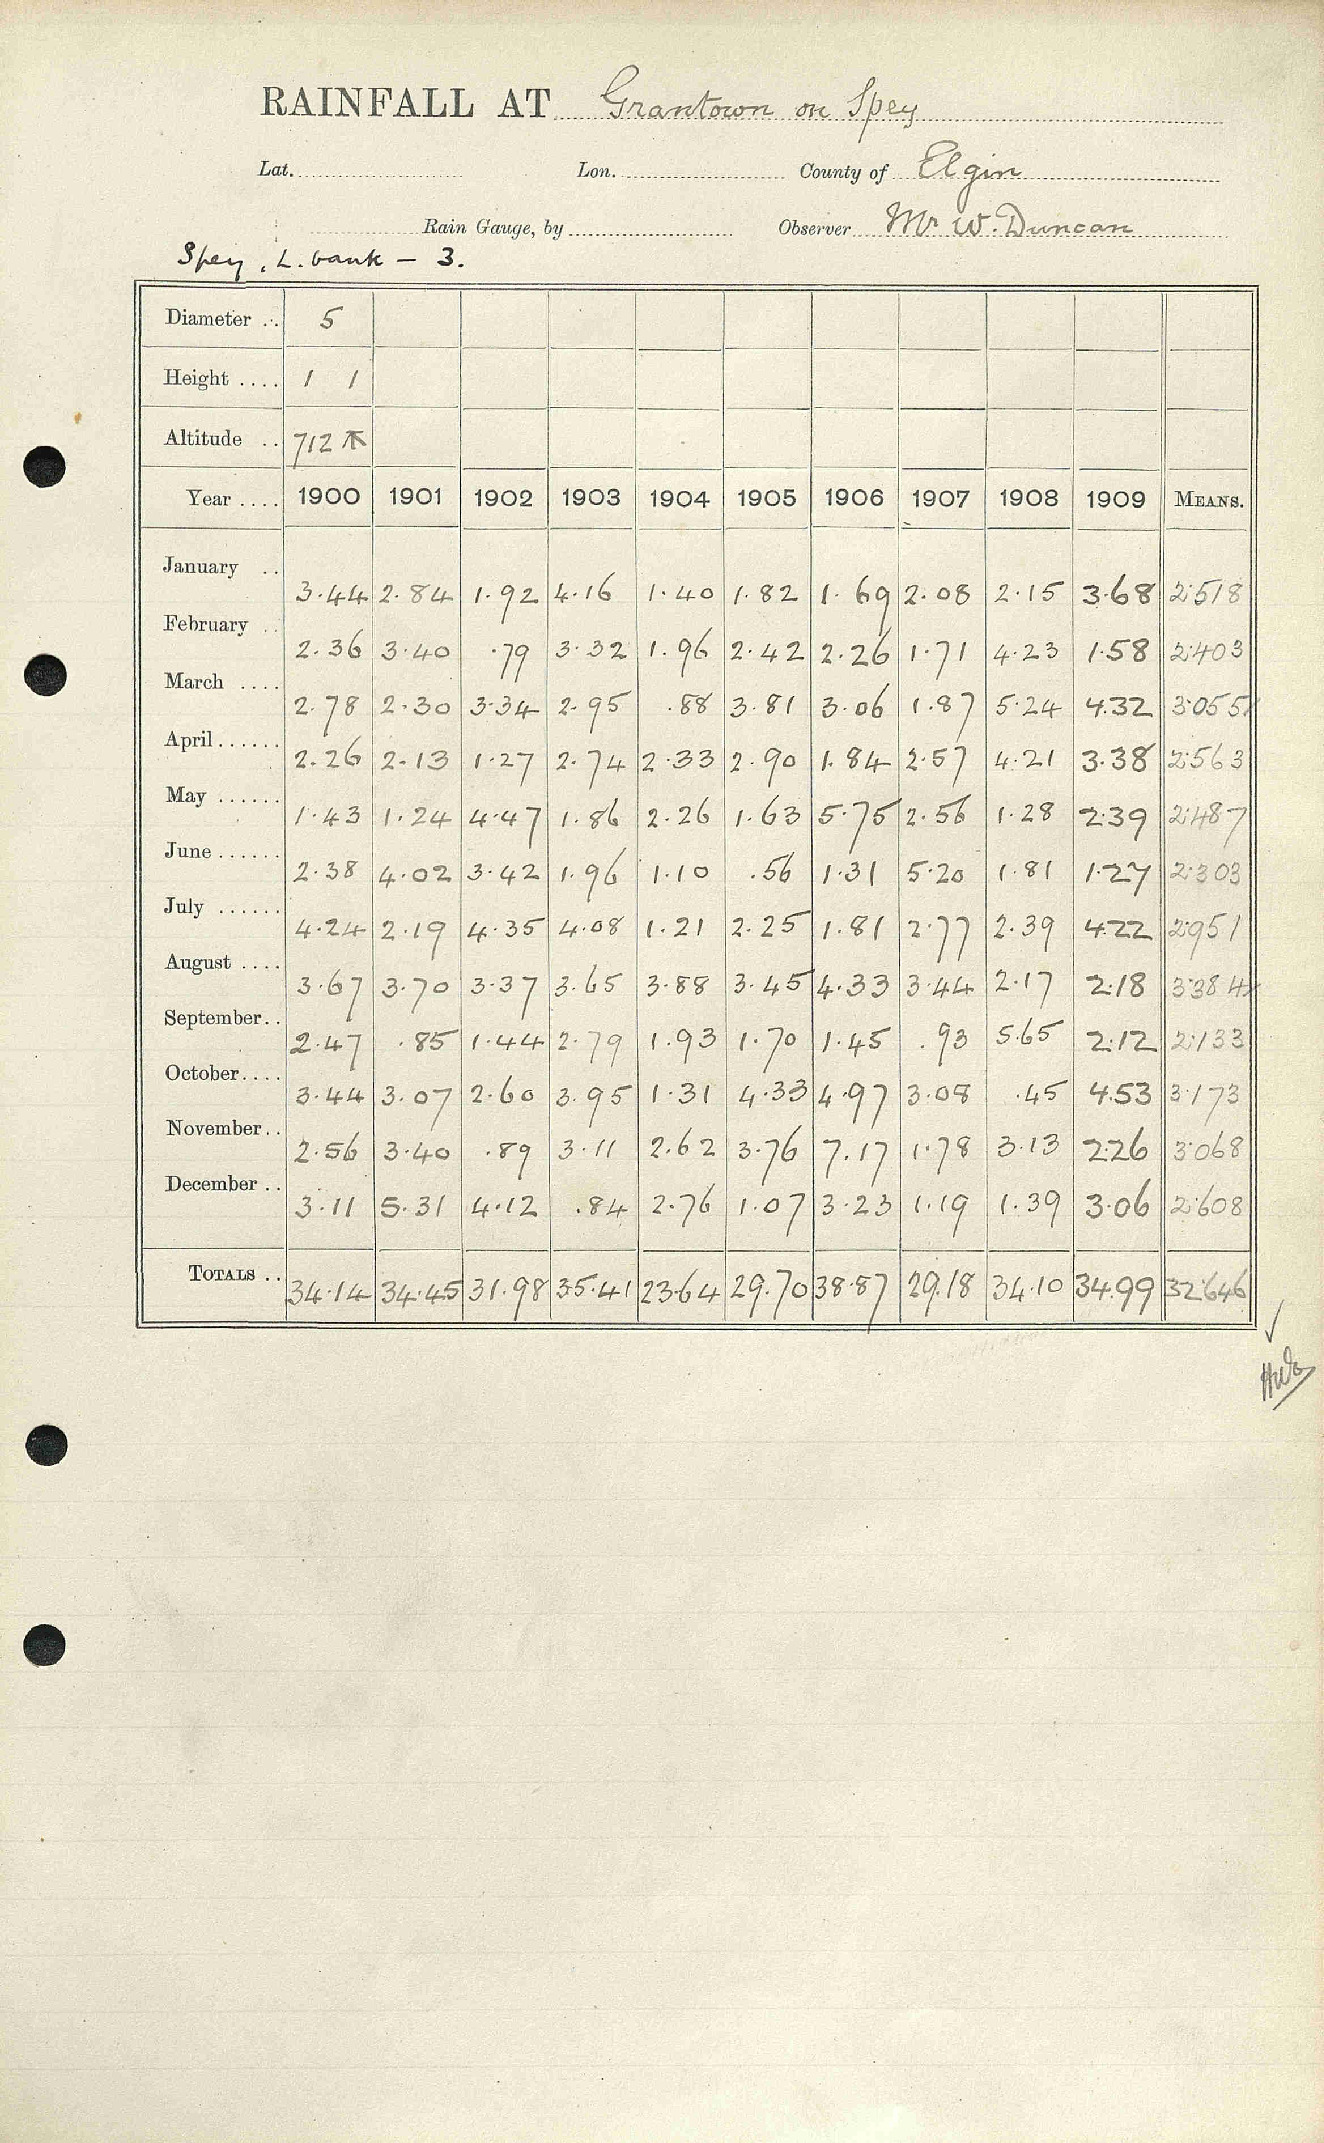 RAINFALL AT Grantown on Spey
Lat. Lon. County of Elgin
Rain Gauge, by Observer Mr W. Duncan
Spey, L. bank – 3.
Diameter .. 5
Height .... 1 1
Altitude .. 712
Year .... 1900 1901 1902 1903 1904 1905 1906 1907 1908 1909 MEANS.
January .. 3.44 2.84 1.92 4.16 1.40 1.82 1.69 2.08 2.15 3.68 2.518
February .. 2.36 3.40 .79 3.32 1.96 2.42 2.26 1.71 4.23 1.58 2.403
March .... 2.78 2.30 3.34 2.95 .88 3.81 3.06 1.87 5.24 4.32 3.055
April ...... 2.26 2.13 1.27 2.74 2.33 2.90 1.84 2.57 4.21 3.38 2.563
May ...... 1.43 1.24 4.47 1.86 2.26 1.63 5.75 2.56 1.28 2.39 2.487
June ...... 2.38 4.02 3.42 1.96 1.10 .56 1.31 5.20 1.81 1.27 2.303
July ...... 4.24 2.19 4.35 4.08 1.21 2.25 1.81 2.77 2.39 4.22 2.951
August .... 3.67 3.70 3.37 3.65 3.88 3.45 4.33 3.44 2.17 2.18 3.384
September.. 2.47 .85 1.44 2.79 1.93 1.70 1.45 .93 5.65 2.12 2.133
October.... 3.44 3.07 2.60 3.95 1.31 4.33 4.97 3.08 .45 4.53 3.173
November.. 2.56 3.40 .89 3.11 2.62 3.76 7.17 1.78 3.13 2.26 3.068
December .. 3.11 5.31 4.12 .84 2.76 1.07 3.23 1.19 1.39 3.06 2.608
TOTALS .. 34.14 34.45 31.98 35.41 23.64 29.70 38.87 29.18 34.10 34.99 32.646